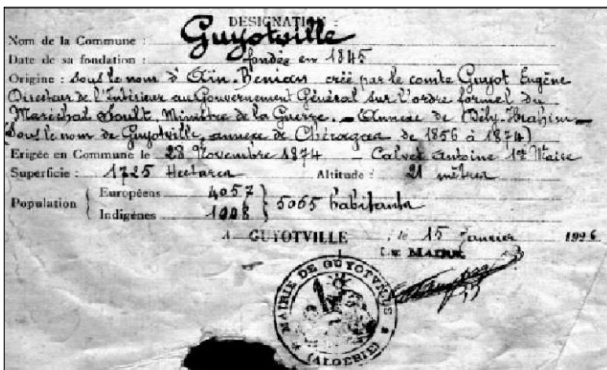 DESIGNATION :
Nom de la Commune : Guyotville
Date de sa fondation : fondée en 1845
Origine : sous le nom d'Aïn-Benian créé par le comte Guyot Eugène
Directeur de l'Intérieur au Gouvernement Général sur l'ordre formel du
Maréchal Soult, Ministre de la Guerre. — Annexe de (Dély-Ibrahim —
sous le nom de Guyotville, annexe de Chéragas de 1856 à 1874)
Erigée en Commune le 28 Novembre 1874 — Calvet Antoine 1er Maire
Superficie : 1725 Hectares Altitude : 21 mètres
Population { Européens 4057 } 5065 habitants
Indigènes 1008
A GUYOTVILLE le 15 Janvier 1926
LE MAIRE
MAIRIE DE GUYOTVILLE
(ALGERIE)